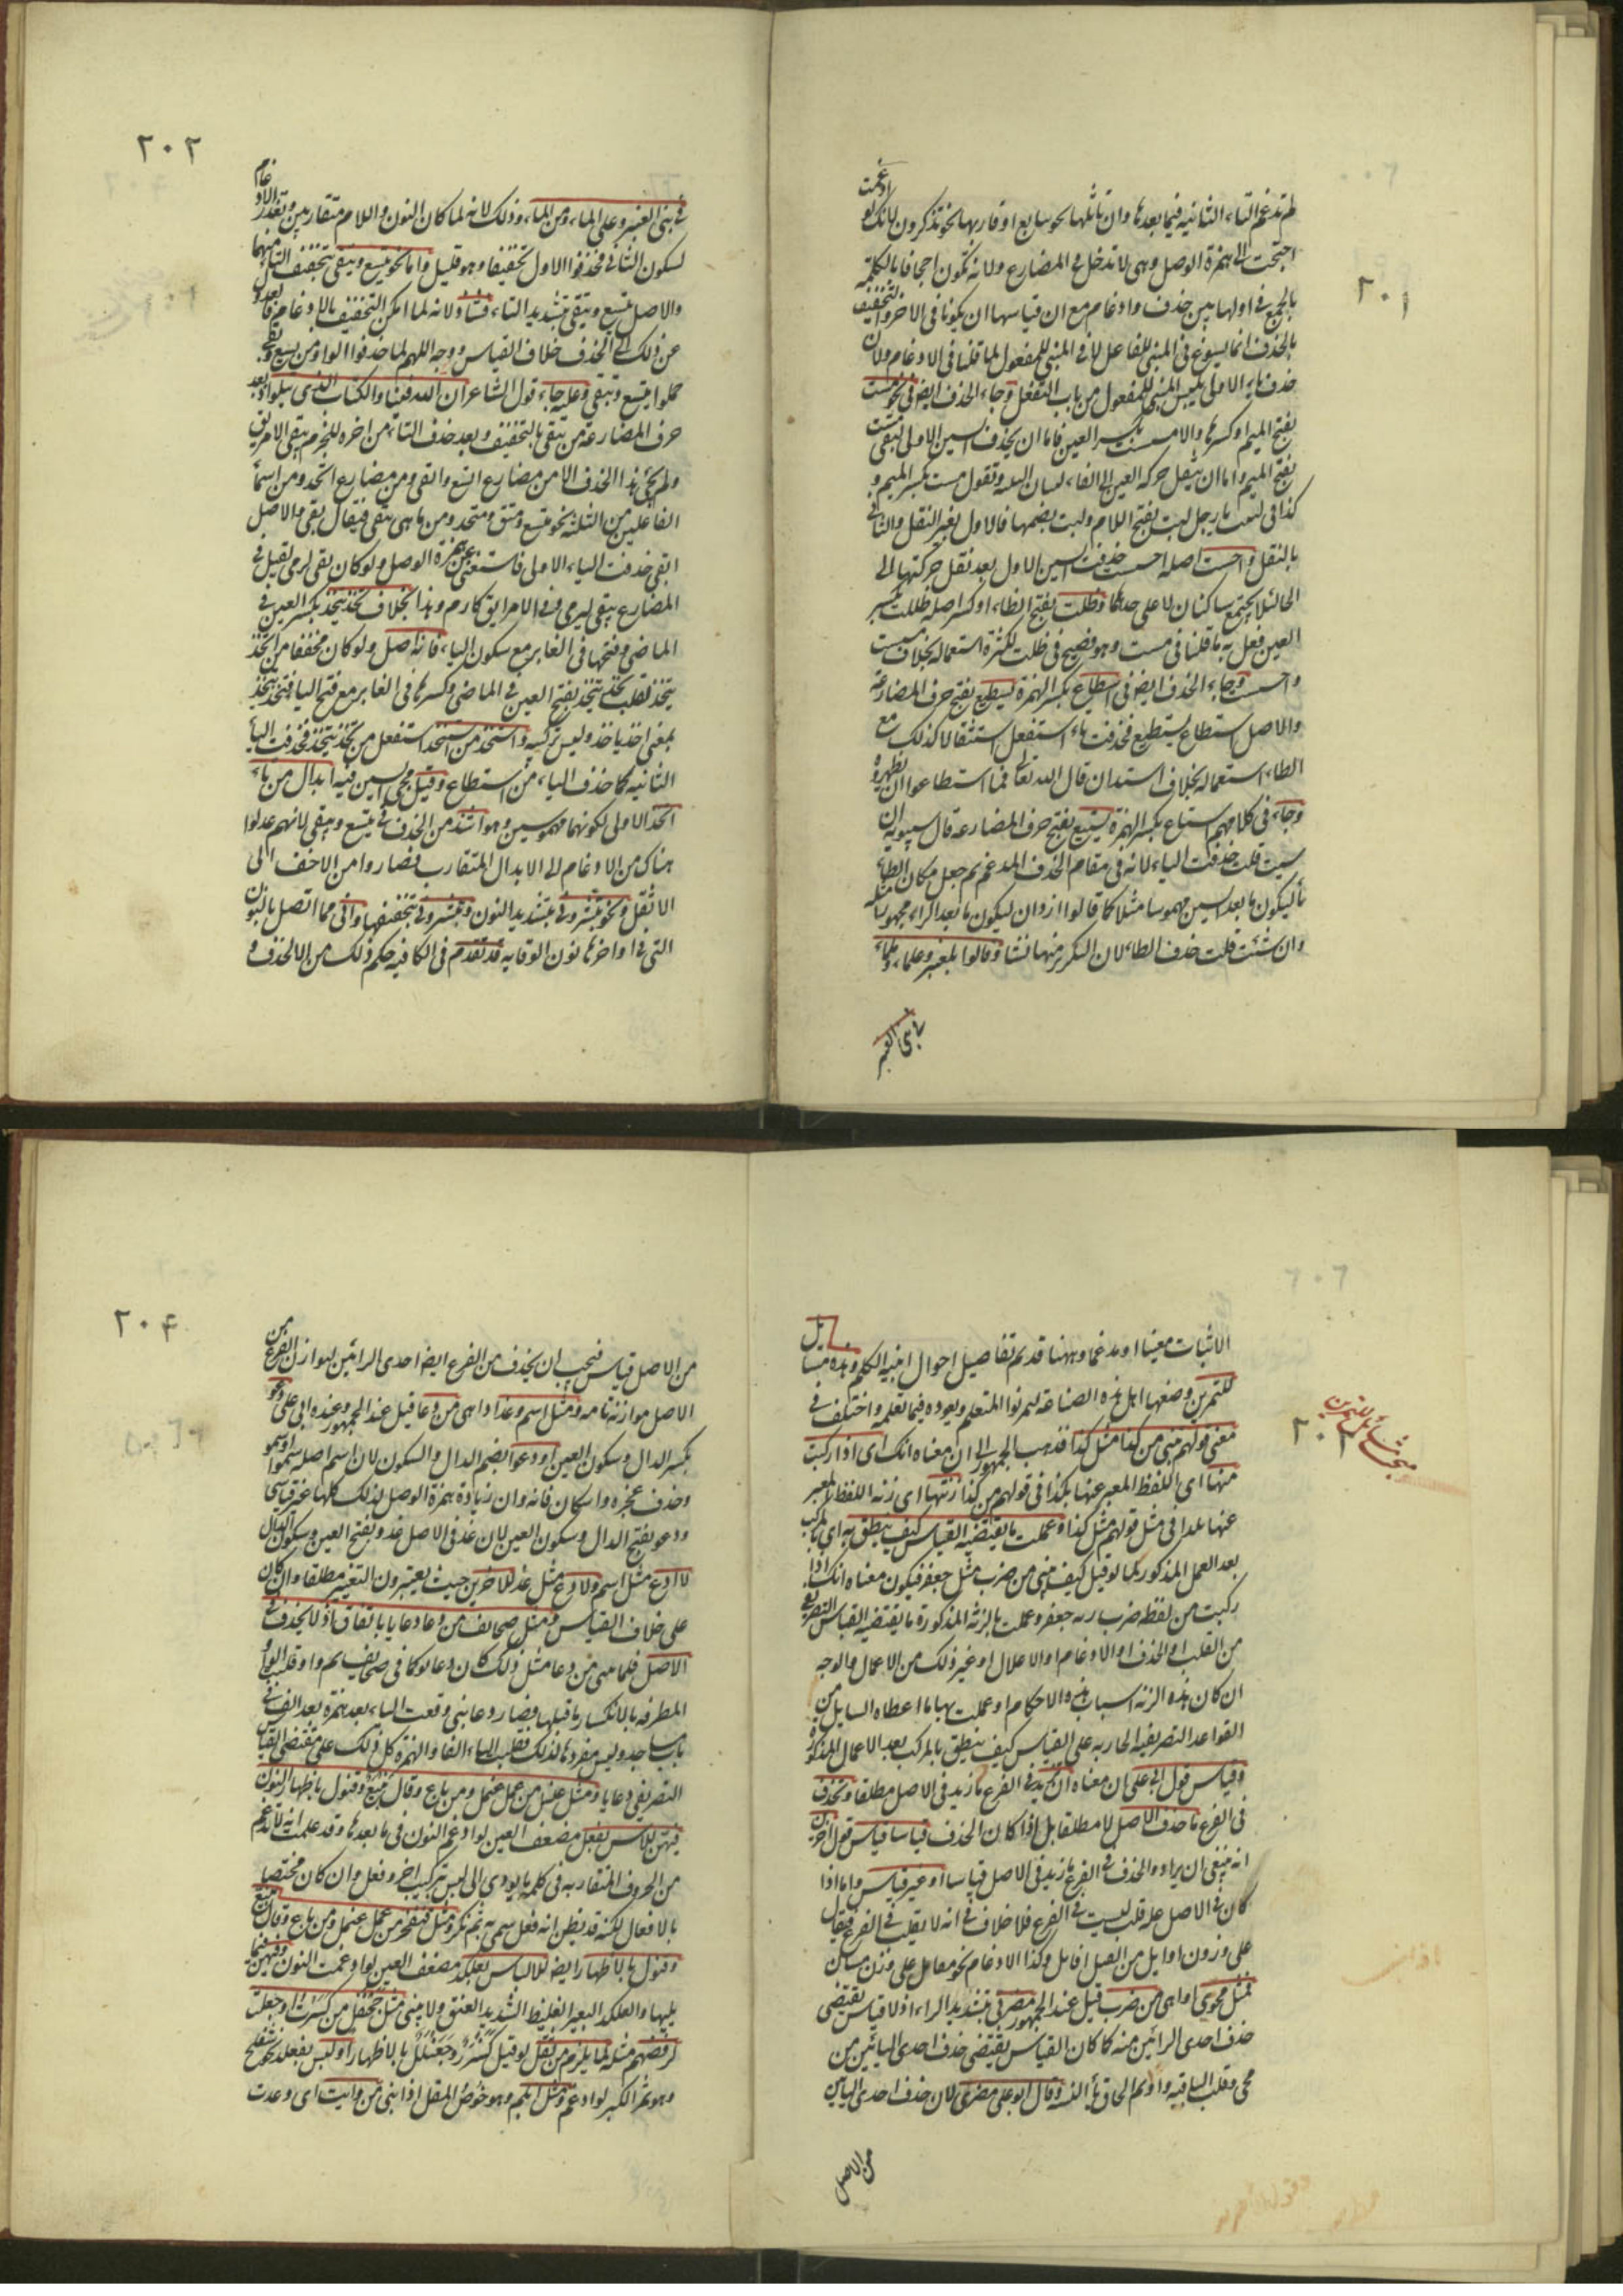 ٢٠١
لم تدغم التاء الثانية فيما بعدها وان تماثلها نحو تتابع او قاربها نحو تتذكرون لانك لو ادغمت
احتجت الى همزة الوصل وهى لا تدخل فى المضارع ولانه يكون اجحافا بالكلمة
بالجمع فى اولها بين حذف وادغام مع ان قياسها ان يكونا فى الاخر والتخفيف
بالحذف انما يسوغ فى المبنى للفاعل لا فى المبنى للمفعول لما قلنا فى الادغام ولان
حذف التاء الاولى يلبس المبنى للمفعول من باب التفعل وجاء الحذف ايضا فى نحو مست
بفتح الميم او كسرها والاصل مسست بكسر العين فاما ان يحذف السين الاولى فيبقى مست
بفتح الميم واما ان ينقل حركة العين الى الفاء وتقول مست بكسر الميم و
كذا فى لببت يا رجل لبت بفتح اللام ولبت بضمها فالاول بغير النقل والثانى
بالنقل واحست اصله احسست حذفت السين الاول بعد نقل حركتها الى
الحاء لئلا يجتمع ساكنان لا على حدهما وظلت بفتح الظاء او كسرها اصله ظللت بكسر
العين فعل به ما قلنا فى مست وهو فصيح فى ظلت لكثرة استعماله بخلاف مست
واحست وجاء الحذف ايضا فى اسطاع بكسر الهمزة يسطيع بفتح حرف المضارعة
والاصل استطاع يستطيع فحذفت تاء استفعل استثقالا كذلك مع
الطاء استعماله بخلاف استدان قال الله تعالى فما اسطاعوا ان يظهروه
وجاء فى كلامهم استاع بكسر الهمزة يستيع بفتح حرف المضارعة قال سيبويه ان
شئت قلت حذفت التاء لانه فى مقام الحذف المدغم ثم جعل مكان الطاء
تاء ليكون ما بعد السين مهموسا مثلها كما قالوا ازدان ليكون ما بعد الزاء مجهورا مثله
وان شئت قلت حذف الطاء لان التكرير منها نشا وقالوا بلعنبر وعلماء وملماء
فى بنى العنبر
٢٠٢
فى بنى العنبر وعلى الماء ومن الماء وذلك لانه لما كان النون واللام متقاربين وتعذر الادغام
لسكون الثانى فحذفوا الاول تخفيفا وهو قليل واما نحو يتسع ويتقى بتخفيف التاء منهما
والاصل يتسع ويتقى بتشديد التاء فشاذ لانه لما امكن التخفيف بالادغام فالعدول
عن ذلك الى الحذف خلاف القياس ووجه اللهم لما حذفوا الواو من يسع ويقى
حملوا يتسع ويتقى وعليه جاء قول الشاعر تق الله فينا والكتاب الذى تتلو اذ بعد
حرف المضارعة من يتقى بالتخفيف وبعد حذف التاء من اخره للجزم يبقى الامر تق
ولم يجئ هذا الحذف الا من مضارع اتسع واتقى ومن مضارع اتخذ ومن اسماء
الفاعلين من الثلثة نحو متسع ومتق ومتخذ ومن ماضى يتقى فيقال تقى والاصل
اتقى حذفت التاء الاولى فاستغنى عن همزة الوصل ولو كان تقى كرمى لقيل فى
المضارع يتقى كيرمى وفى الامر اتق كارم وهذا بخلاف تخذ يتخذ بكسر العين فى
الماضى وفتحها فى الغابر مع سكون التاء فانه اصل ولو كان مخففا من اتخذ
يتخذ لقلت تخذ يتخذ بفتح العين فى الماضى وكسرها فى الغابر مع فتح التاء فتخذ يتخذ
بمعنى اخذ ياخذ وليس تركيبه واستخذ من استتخذ استفعل من تخذ يتخذ فحذفت التاء
الثانية كما حذف التاء من استطاع وقيل مجئ السين فيه ابدال من تاء
اتخذ الاولى لكونهما مهموسين وهو اشذ من الحذف فى يتسع ويتقى لانهم عدلوا
هناك من الادغام الى الابدال المتقارب فصاروا من الاخف الى
الاثقل ونحو تبشرونى بتشديد النون وتبشرونى بتخفيفها وانى مما اتصل بالنون
التى فى اواخرها نون الوقاية قد تقدم فى الكافية حكم ذلك من الحذف و
٢٠٣
مبحث مسائل التمرين
الاثبات معينا او مدغما وههنا قد تم تفاصيل احوال ابنية الكلم وهذه مسائل
للتمرين وضعها اهل هذه الصناعة ليمرنوا المتعلم ويعودوه فيما تعلمه واختلف فى
معنى قولهم تبنى من كذا مثل كذا فذهب الجمهور الى ان معناه انك اى اذا ركبت
منها اى اللفظ المعبر عنها بكذا فى قولهم من كذا زنتها اى زنة اللفظ المعبر
عنها بكذا فى مثل قولهم مثل كذا وعملت ما يقتضيه القياس كيف ينطق به اى بالمركب
بعد العمل المذكور كما لو قيل كيف تبنى من ضرب مثل جعفر فيكون معناه انك اذا
ركبت من لفظة ضرب زنة جعفر وعملت بالزنة المذكورة ما يقتضيه القياس التصريفى
من القلب او الحذف او الادغام او الاعلال او غير ذلك من الاعمال والوجه
ان كان هذه الزنة اسباب هذه الاحكام او عملت بها ما اعطاه السايل من
القواعد التصريفية الجارية على القياس كيف ينطق بالمركب بعد الاعمال المذكورة
وقياس قول ابى على ان معناه ان تزيد فى الفرع ما زيد فى الاصل مطلقا وتحذف
فى الفرع ما حذف الاصل لا مطلقا بل اذا كان الحذف قياسا وقياس قول اخرين
انه ينبغى ان يزاد والحذف فى الفرع ما زيد فى الاصل قياسا او غير قياس واما اذا
كان فى الاصل علة قلب ليست فى الفرع فلا خلاف فى انه لا يقلب فى الفرع فيقال
على وزن اوايل من القتل اقاتل وكذا الادغام
فمثل محوى اذا بنى من ضرب قيل عند الجمهور مضربى بتشديد الراء اذ لا قياس يقتضى
حذف احدى الرائين منه كما كان القياس يقتضى حذف احدى اليائين من
محى وقلب الباقية واوا ثم الحاق ياء النسبة وقال ابو على مضرى لان حذف احدى اليائين
من الاصل
٢٠٤
من الاصل قياس فيجب ان يحذف من الفرع ايضا احدى الرائين ليوازن الفرع من
الاصل موازنة تامة ومثل اسم وغد اذا بنى من دعا قيل عند الجمهور وعند ابى على دعو
بكسر الدال وسكون العين او دعو بضم الدال والسكون لان اسم اصله سمو او سمو
وحذف عجزه واسكان فائه وان زيادة همزة الوصل لذلك كلها غير قياسى
ودعو بفتح الدال وسكون العين لان غد فى الاصل غدو بفتح العين وسكون الدال
لا ادع مثل اسم ولا دع مثل غد للاخرين حيث يعتبرون التغيير مطلقا وان كان
على خلاف القياس ومثل صحائف من دعا دعايا باتفاق اذ لا يحذف فى
الاصل فلما بنى من دعا مثل ذلك كان دعائو كما فى صحائف ثم وقلبت الواو
المتطرفة ياء لانكسار ما قبلها فصار دعائى وقعت الياء بعد همزة بعد الف فى
باب مساجد وليس مفردها كذلك فقلبت الياء الفا والهمزة كل ذلك على مقتضى القياس
التصريفى دعايا ومثل عنسل من عمل عنمل ومن باع وقال بنيع وقنول باظهار النون
فيهن للالباس بفعل مضعف العين لو ادغم النون فى ما بعدها وقد علمت انه لا تدغم
من الحروف المتقاربة فى كلمة ما يودى الى لبس بتركيب اخر وفعل وان كان مختصا
بالافعال لكنه قد يظن انه فعل سمى به ثم نكر ومثل قنفخر من عمل عنمل ومن باع وقال بنيع
وقنول بالاظهار ايضا للالباس بعلكد مضعف العين لو ادغمت النون فيهن فيما
يليها والعلكد البعير الغليظ الشديد العنق ولا يبنى مثل جحنفل من كسرت او جعلت
لرفضهم مثله لما يلزم من ثقل لو قيل كسنرر وجعنلل بالاظهار او لبس بفعلل نحو شفلح
وهو ثمر الكبر لو ادغم ومثل ابلم وهو خوص المقل اذا بنى من وايت اى وعدت